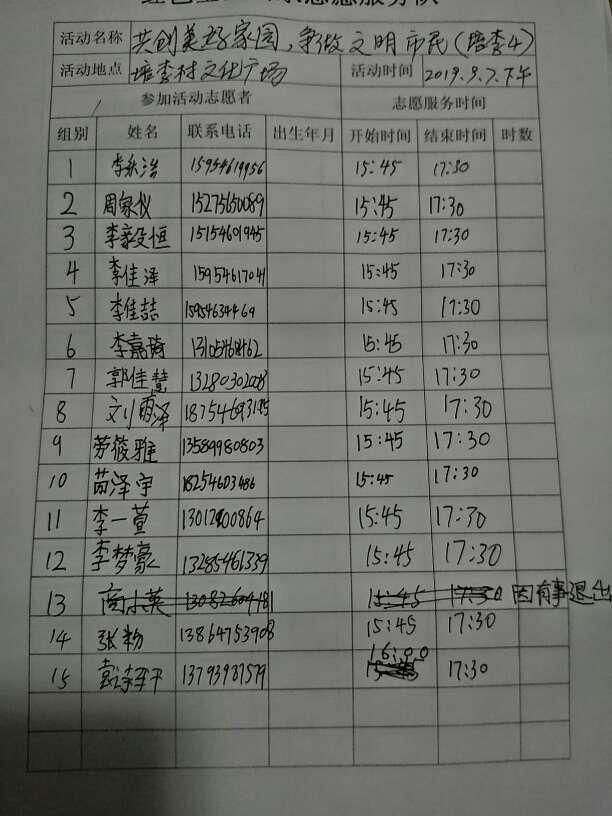 志愿服务队
活动名称 共创美好家园,争做文明市民(培李4)
活动地点 培李村文化广场 活动时间 2019.9.7.下午
参加活动志愿者 志愿服务时间
组别 姓名 联系电话 出生年月 开始时间 结束时间 时数
1 李乐浩 15954619956 15:45 17:30
2 周家仪 15275650089 15:45 17:30
3 李毅恒 15154601945 15:45 17:30
4 李佳泽 15954617041 15:45 17:30
5 李佳喆 15954634469 15:45 17:30
6 李嘉琦 15:45 17:30
7 郭佳慧 13280302028 15:45 17:30
8 刘雨泽 15:45 17:30
9 劳筱雅 13589980803 15:45 17:30
10 苗泽宇 18254603486 15:45 17:30
11 李一萱 15:45 17:30
12 李梦豪 13285461339 15:45 17:30
13 15:45 17:30 因有事退出
14 张粉 13864753908 15:45 17:30
15 13793987579 16:00 17:30